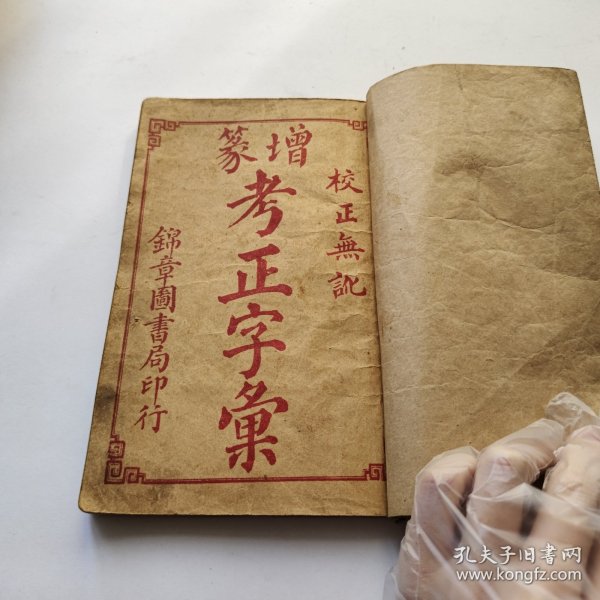 校正無訛
增篆
考正字彙
錦章圖書局印行
孔夫子旧书网
www.kongfz.com